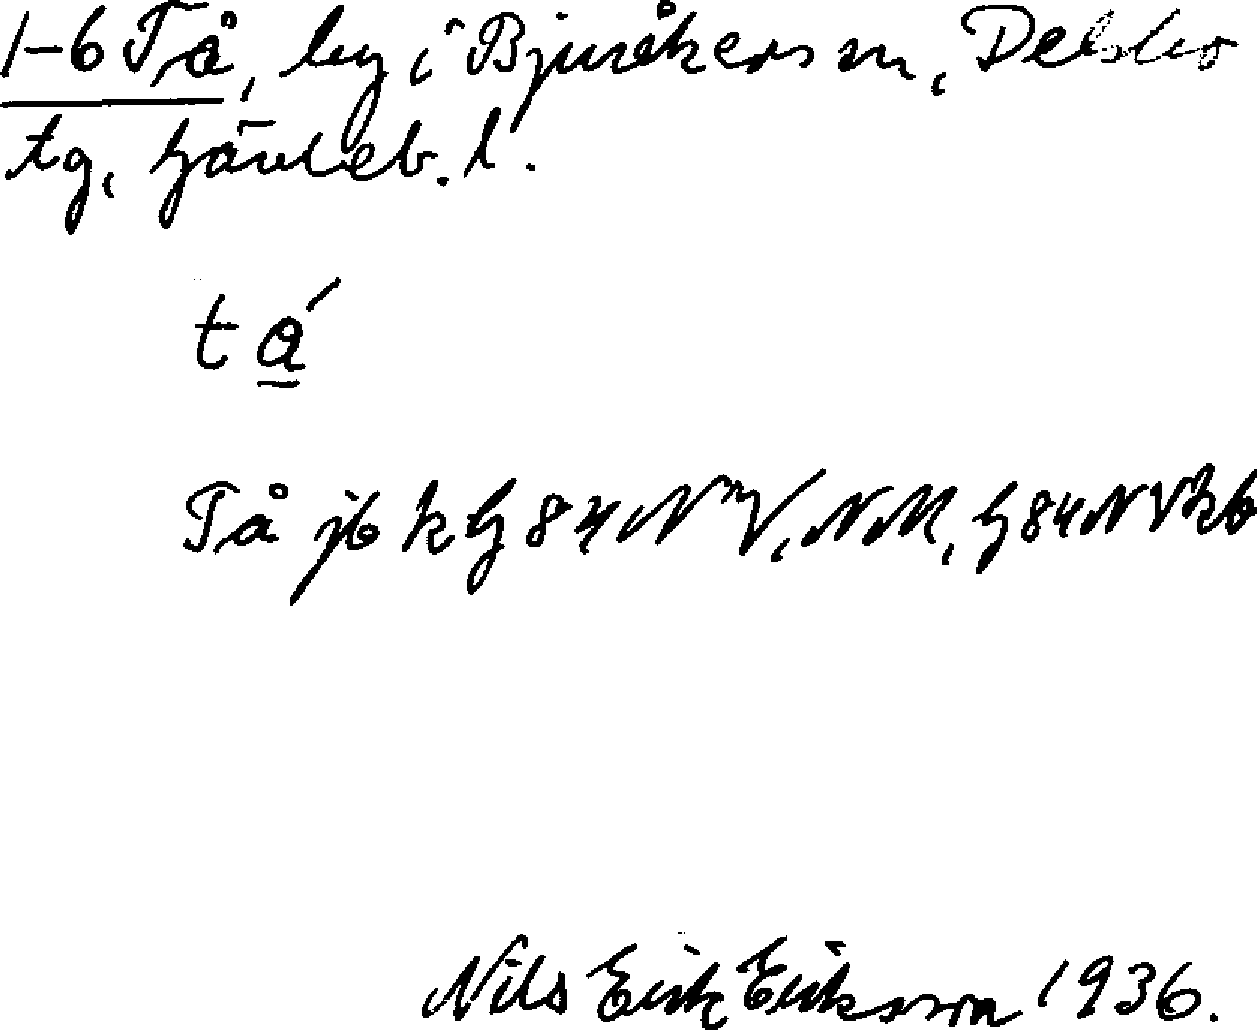 1-6 Tå, by i Bjuråkers sn, Delsbo
tg, Gävleb. l.
tá̲
Tå jb k G 84 NV, NM, G 84 NV kb
Nils Erik Eriksson 1936.